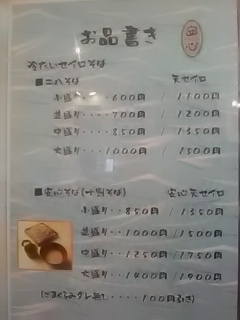 お品書き
冷たいセイロそば
■二八そば 天セイロ
小盛り‥‥600円 / 1100円
並盛り‥‥700円 / 1200円
中盛り‥‥850円 / 1350円
大盛り‥‥1000円 / 1500円
■安心そば(十割そば) 安心天セイロ
小盛り‥850円 / 1350円
並盛り‥1000円 / 1500円
中盛り‥1250円 / 1750円
大盛り‥1400円 / 1900円
(ごまくるみダレ無し‥‥100円引き)